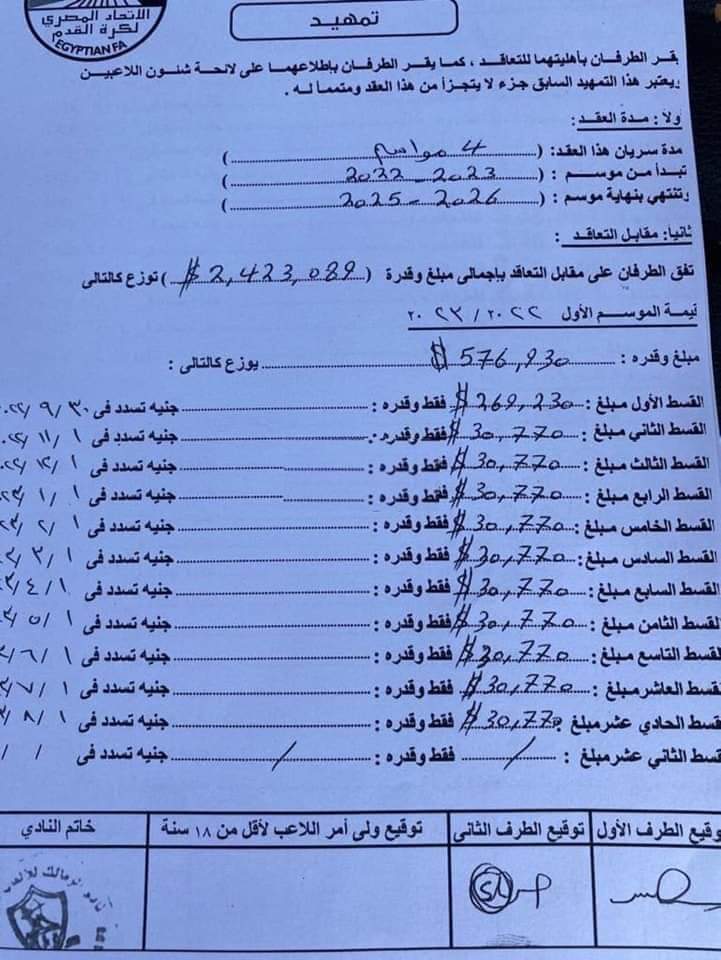 الاتحاد المصري
لكرة القدم
EGYPTIAN FA
تمهيد
يقر الطرفان بأهليتهما للتعاقد ، كما يقر الطرفان بإطلاعهما على لائحة شئون اللاعبين
يعتبر هذا التمهيد السابق جزء لا يتجزأ من هذا العقد ومتمما له .
ولاً : مدة العقد :
مدة سريان هذا العقد: ( 4 مواسم )
تبدأ من موسم : ( 2022 - 2023 )
وتنتهي بنهاية موسم : ( 2025 - 2026 )
ثانياً: مقابل التعاقد :
تفق الطرفان على مقابل التعاقد بإجمالى مبلغ وقدرة ( $ 2,423,089 ) توزع كالتالى
قيمة الموسم الأول ٢٠٢٢ / ٢٠٢٣
مبلغ وقدره : $ 576,930 يوزع كالتالى :
القسط الأول مبلغ : $ 269,230 فقط وقدره : جنيه تسدد فى ٣٠ / ٩ / ٢٠٢٢
القسط الثاني مبلغ : $ 30,770 فقط وقدره : جنيه تسدد فى ١ / ١١ /
القسط الثالث مبلغ : $ 30,770 فقط وقدره : جنيه تسدد فى ١ / ١٢ /
القسط الرابع مبلغ : $ 30,770 فقط وقدره : جنيه تسدد فى ١ / ١ /
القسط الخامس مبلغ : $ 30,770 فقط وقدره : جنيه تسدد فى ١ / ٢ /
القسط السادس مبلغ : $ 30,770 فقط وقدره : جنيه تسدد فى ١ / ٣ /
القسط السابع مبلغ : $ 30,770 فقط وقدره : جنيه تسدد فى ١ / ٤ /
القسط الثامن مبلغ : $ 30,770 فقط وقدره : جنيه تسدد فى ١ / ٥ /
القسط التاسع مبلغ : $ 30,770 فقط وقدره : جنيه تسدد فى ١ / ٦ /
القسط العاشر مبلغ : $ 30,770 فقط وقدره : جنيه تسدد فى ١ / ٧ /
القسط الحادي عشر مبلغ : $ 30,770 فقط وقدره : جنيه تسدد فى ١ / ٨ /
القسط الثاني عشر مبلغ : / فقط وقدره : / جنيه تسدد فى / /
توقيع الطرف الأول
توقيع الطرف الثانى
توقيع ولى أمر اللاعب لأقل من ١٨ سنة
خاتم النادي